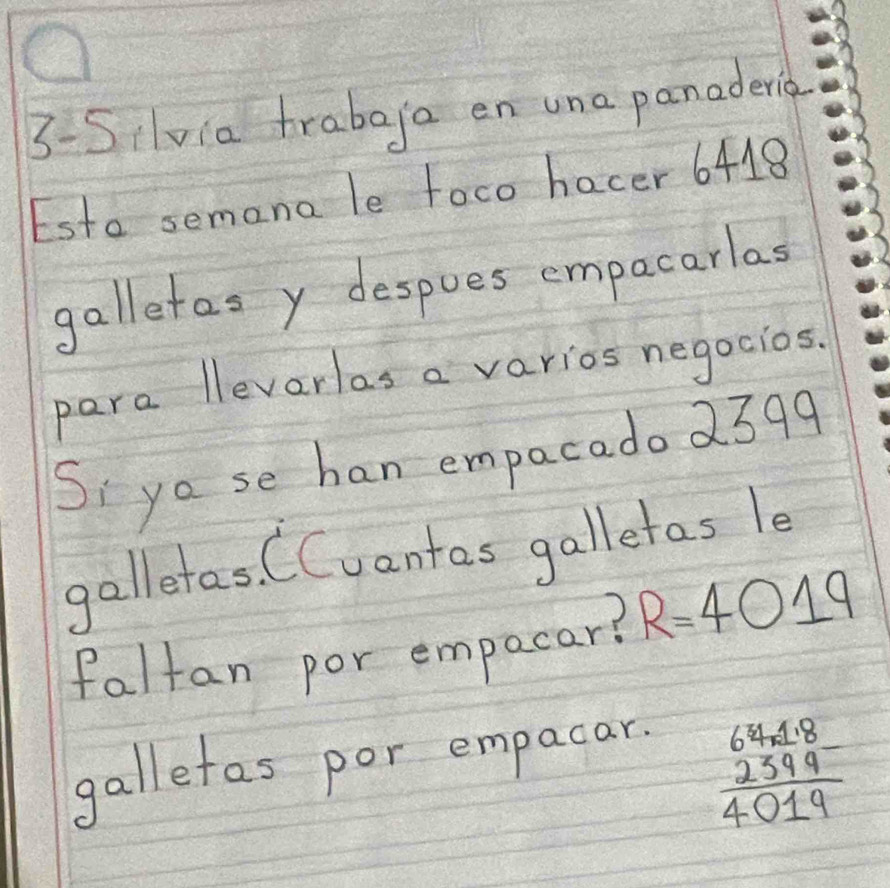 3-Silvia trabaja en una panaderia.
Esta semana le toco hacer 6418
galletas y despues empacarlas
para llevarlas a varios negocios.
Si ya se han empacado 2399
galletas. ¿Cuantas galletas le
faltan por empacar? R=4019
galletas por empacar.
6418
2399-
4019